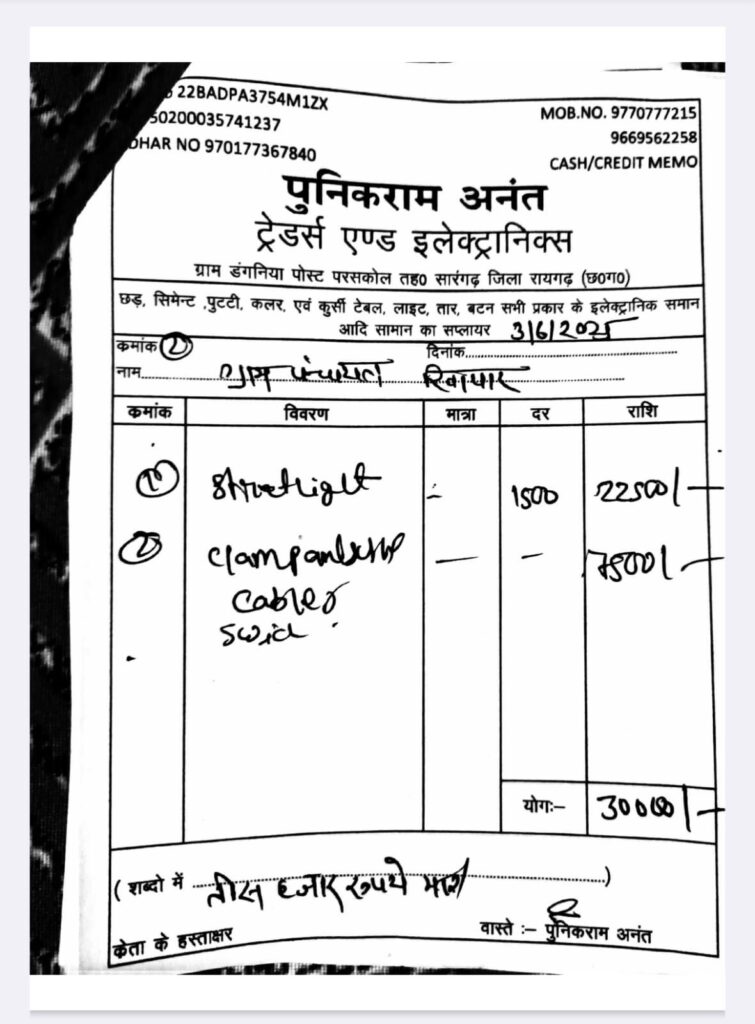 22BADPA3754M1ZX
50200035741237
DHAR NO 970177367840
MOB.NO. 9770777215
9669562258
CASH/CREDIT MEMO
पुनिकराम अनंत
ट्रेडर्स एण्ड इलेक्ट्रानिक्स
ग्राम डंगनिया पोस्ट परसकोल तह0 सारंगढ़ जिला रायगढ़ (छ0ग0)
छड़, सिमेन्ट ,पुटटी, कलर, एवं कुर्सी टेबल, लाइट, तार, बटन सभी प्रकार के इलेक्ट्रानिक समान
आदि सामान का सप्लायर 3/6/2025
कमांक 2 दिनांक
नाम ग्राम पंचायत
कमांक विवरण मात्रा दर राशि
1 Streetlight 1500 22500/-
2 7500/-
cables
योगः– 30000/-
( शब्दो में तीस हजार रूपये मात्र )
केता के हस्ताक्षर
वास्ते :– पुनिकराम अनंत